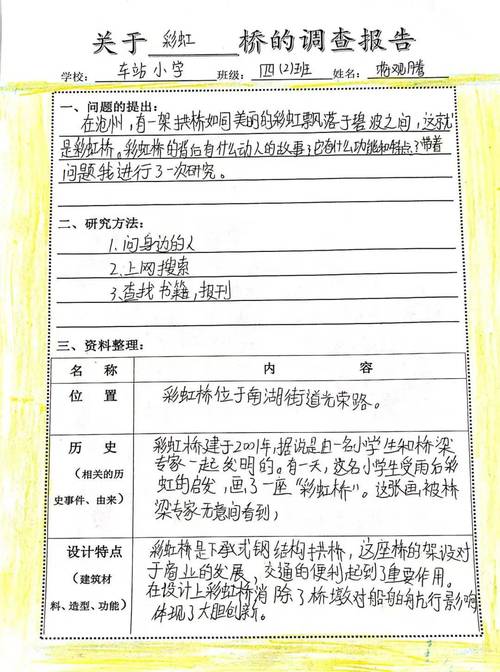 关于 彩虹 桥的调查报告
学校： 车站小学 班级：四(2)班 姓名：蒋观腾
一、问题的提出：
在沧州，有一架拱桥如同美丽的彩虹飘落于碧波之间，这就
是彩虹桥。彩虹桥的背后有什么动人的故事？它有什么功能和特点？带着
问题我进行了一次研究。
二、研究方法：
1.问身边的人
2.上网搜索
3.查找书籍，报刊
三、资料整理：
名 称 内 容
位 置 彩虹桥位于南湖街道光荣路。
历 史
（相关的历
史事件、由来）
彩虹桥建于2001年，据说是由一名小学生和桥梁
专家一起发明的。有一天，这名小学生受雨后彩
虹的启发，画了一座“彩虹桥”。这张画，被桥
梁专家无意间看到，
设计特点
（建筑材
料、造型、功能）
彩虹桥是下承式钢结构拱桥，这座桥的架设对
于商业的发展，交通的便利起到了重要作用。
在设计上彩虹桥消除了桥墩对船舶航行影响
体现了大胆创新。